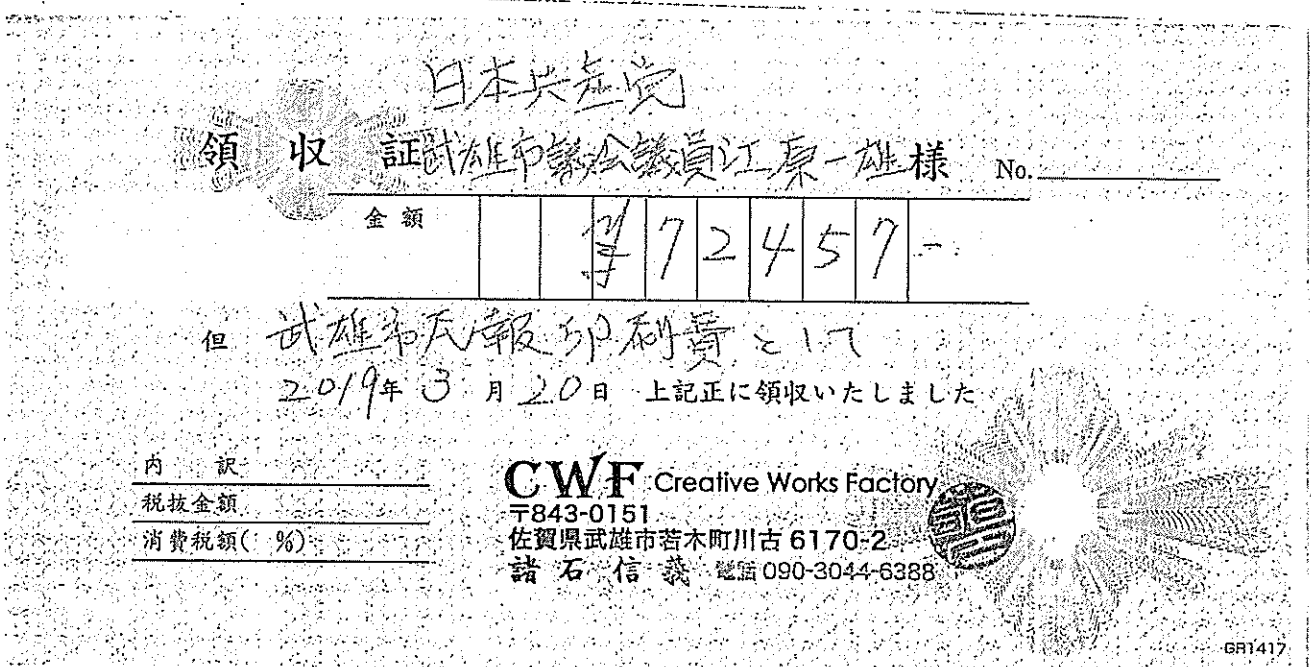 日本共産党
領収証 武雄市議会議員江原一雄様 No.
金額 ¥72457-
但 武雄市民報印刷費として
2019年3月20日 上記正に領収いたしました
内訳
税抜金額
消費税額( %)
CWF Creative Works Factory
〒843-0151
佐賀県武雄市若木町川古 6170-2
諸石信義 電話 090-3044-6388
GR1417